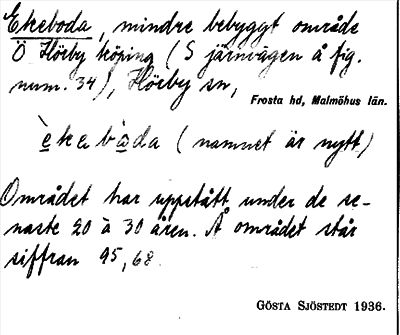 Ekeboda, mindre bebyggt område
Ö Hörby köping (S järnvägen å fig.
num. 34), Hörby sn,
Frosta hd, Malmöhus län.
èkebòda (namnet är nytt)
Området har uppstått under de se-
naste 20 à 30 åren. Å området står
siffran 95,68.
GÖSTA SJÖSTEDT 1936.